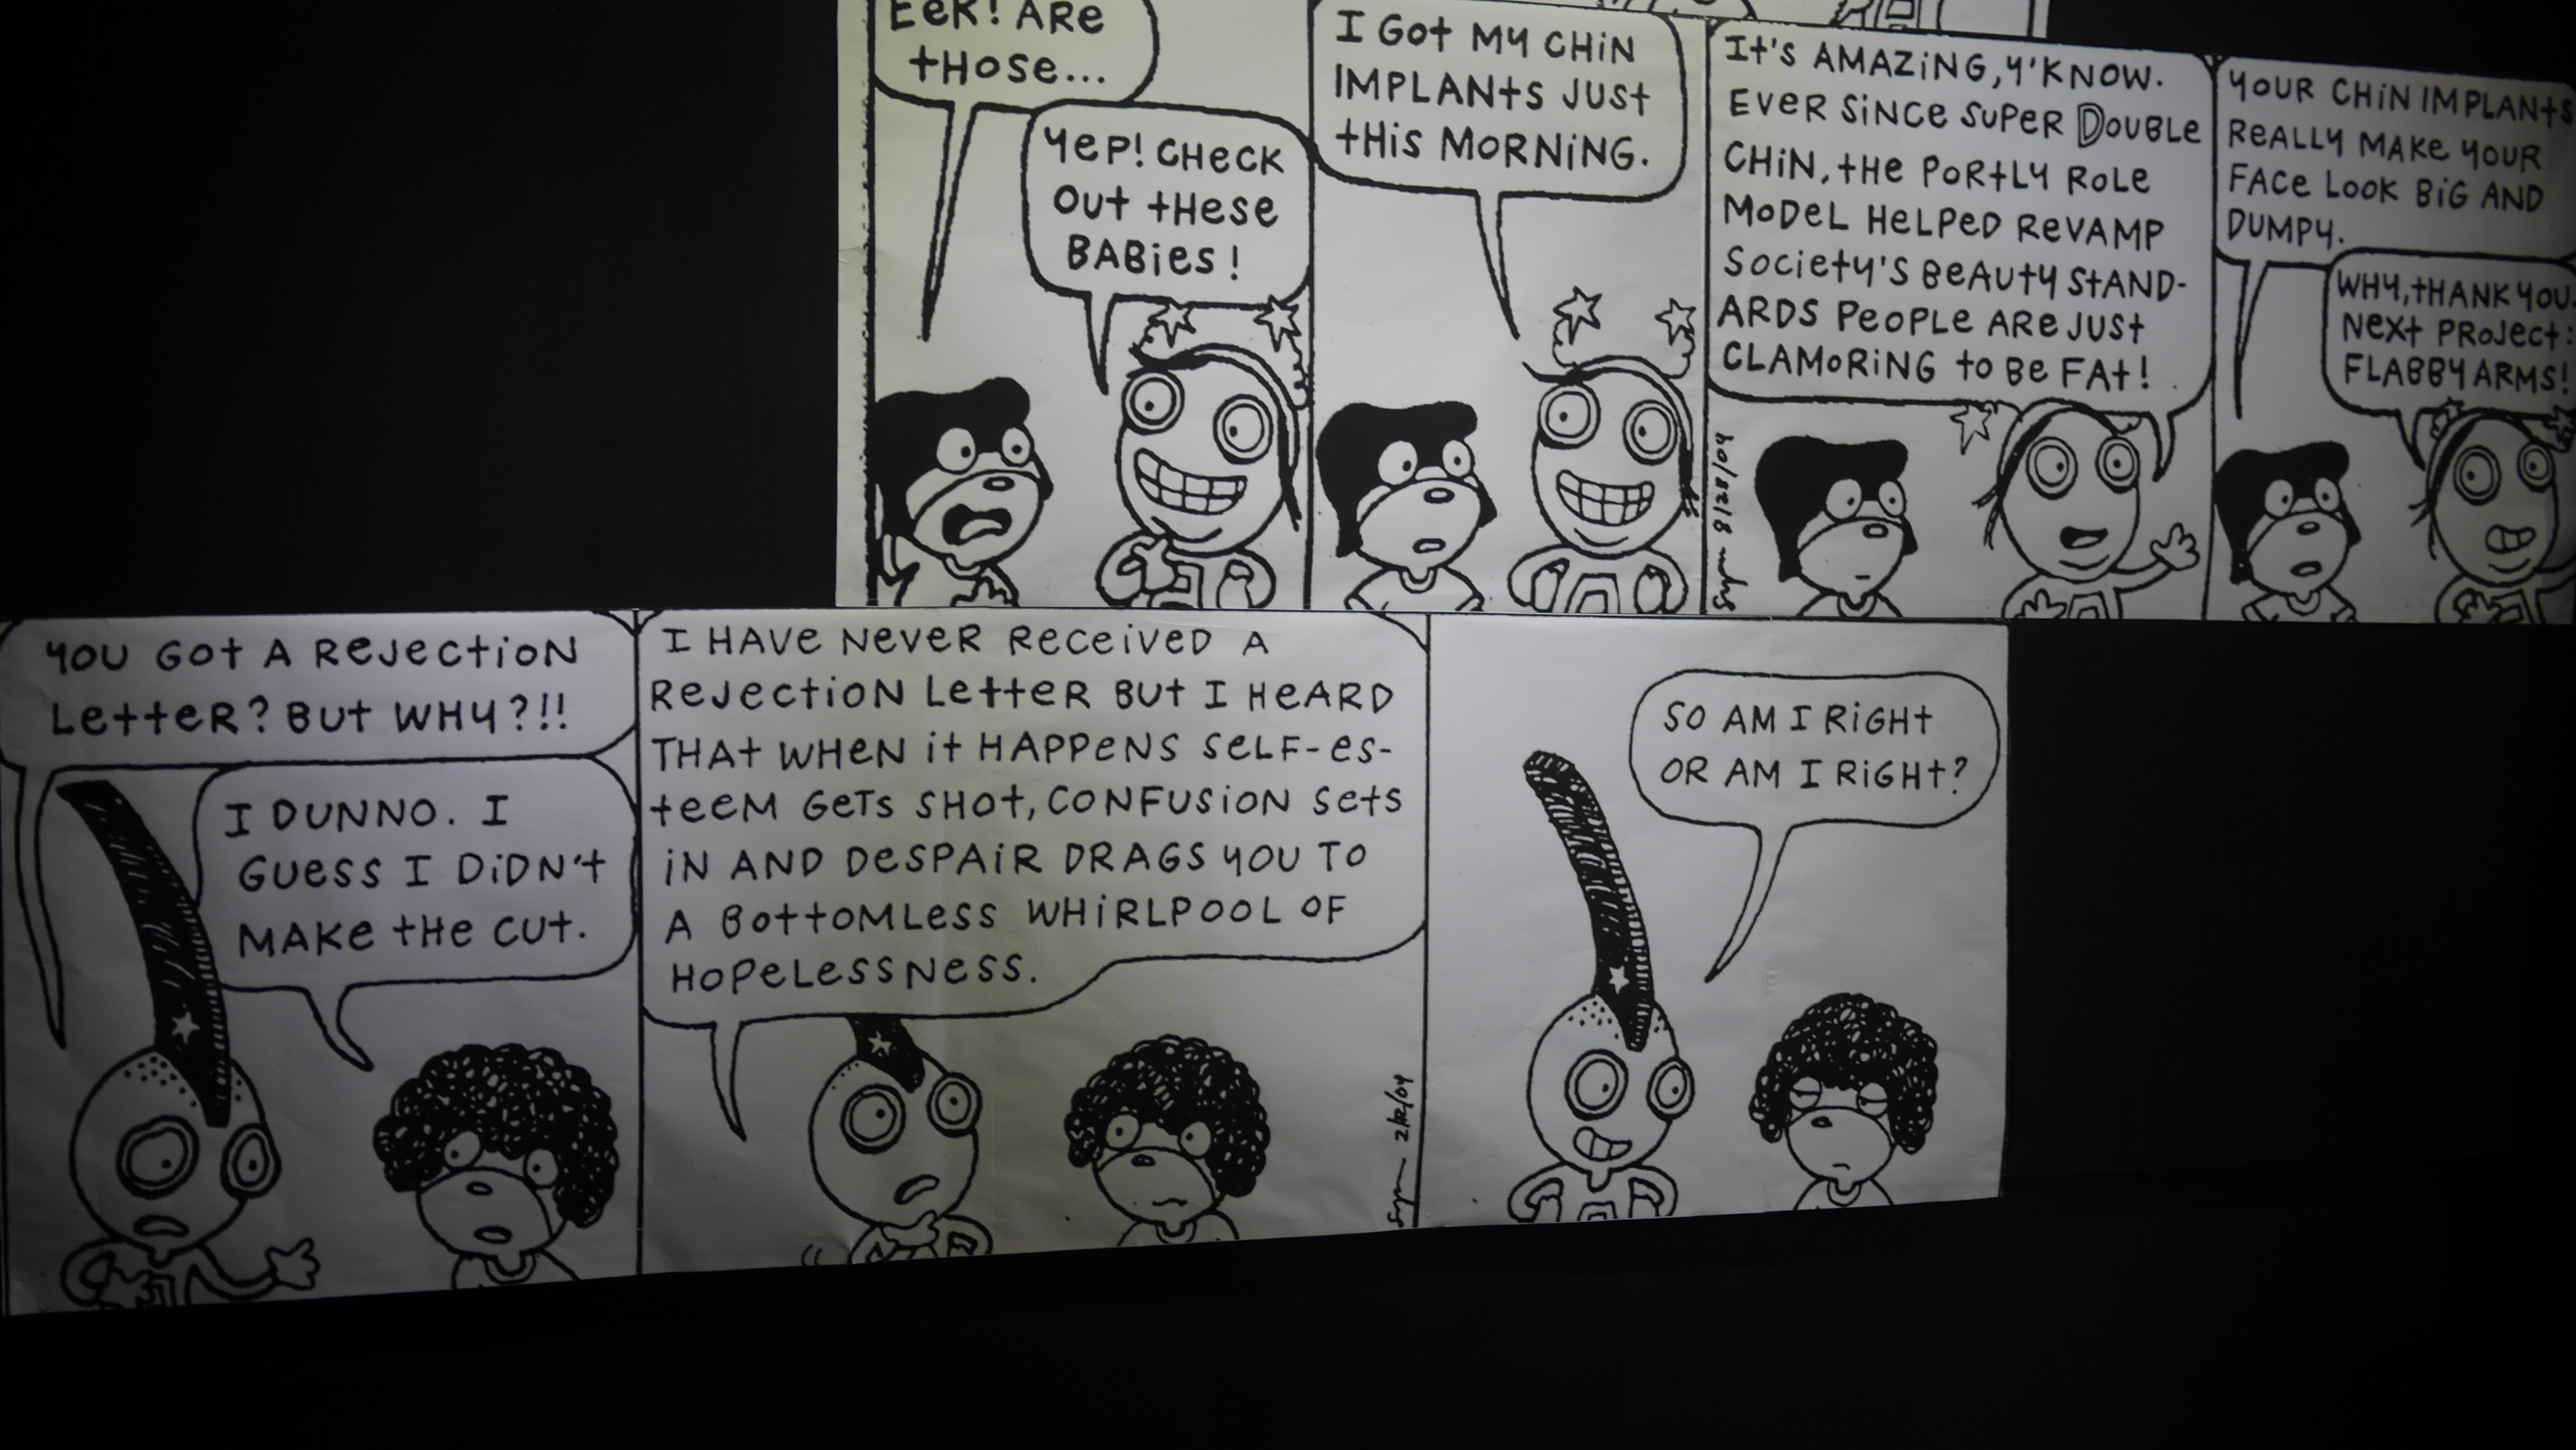 EEK! ARE
THOSE...
YEP! CHECK
OUT THESE
BABIES!
I GOT MY CHIN
IMPLANTS JUST
THIS MORNING.
IT'S AMAZING, Y'KNOW.
EVER SINCE SUPER DOUBLE
CHIN, THE PORTLY ROLE
MODEL HELPED REVAMP
SOCIETY'S BEAUTY STAND-
ARDS PEOPLE ARE JUST
CLAMORING TO BE FAT!
8/28/04
YOUR CHIN IMPLANTS
REALLY MAKE YOUR
FACE LOOK BIG AND
DUMPY.
WHY, THANK YOU.
NEXT PROJECT:
FLABBY ARMS!
YOU GOT A REJECTION
LETTER? BUT WHY?!!
I DUNNO. I
GUESS I DIDN'T
MAKE THE CUT.
I HAVE NEVER RECEIVED A
REJECTION LETTER BUT I HEARD
THAT WHEN IT HAPPENS SELF-ES-
TEEM GETS SHOT, CONFUSION SETS
IN AND DESPAIR DRAGS YOU TO
A BOTTOMLESS WHIRLPOOL OF
HOPELESSNESS.
SO AM I RIGHT
OR AM I RIGHT?